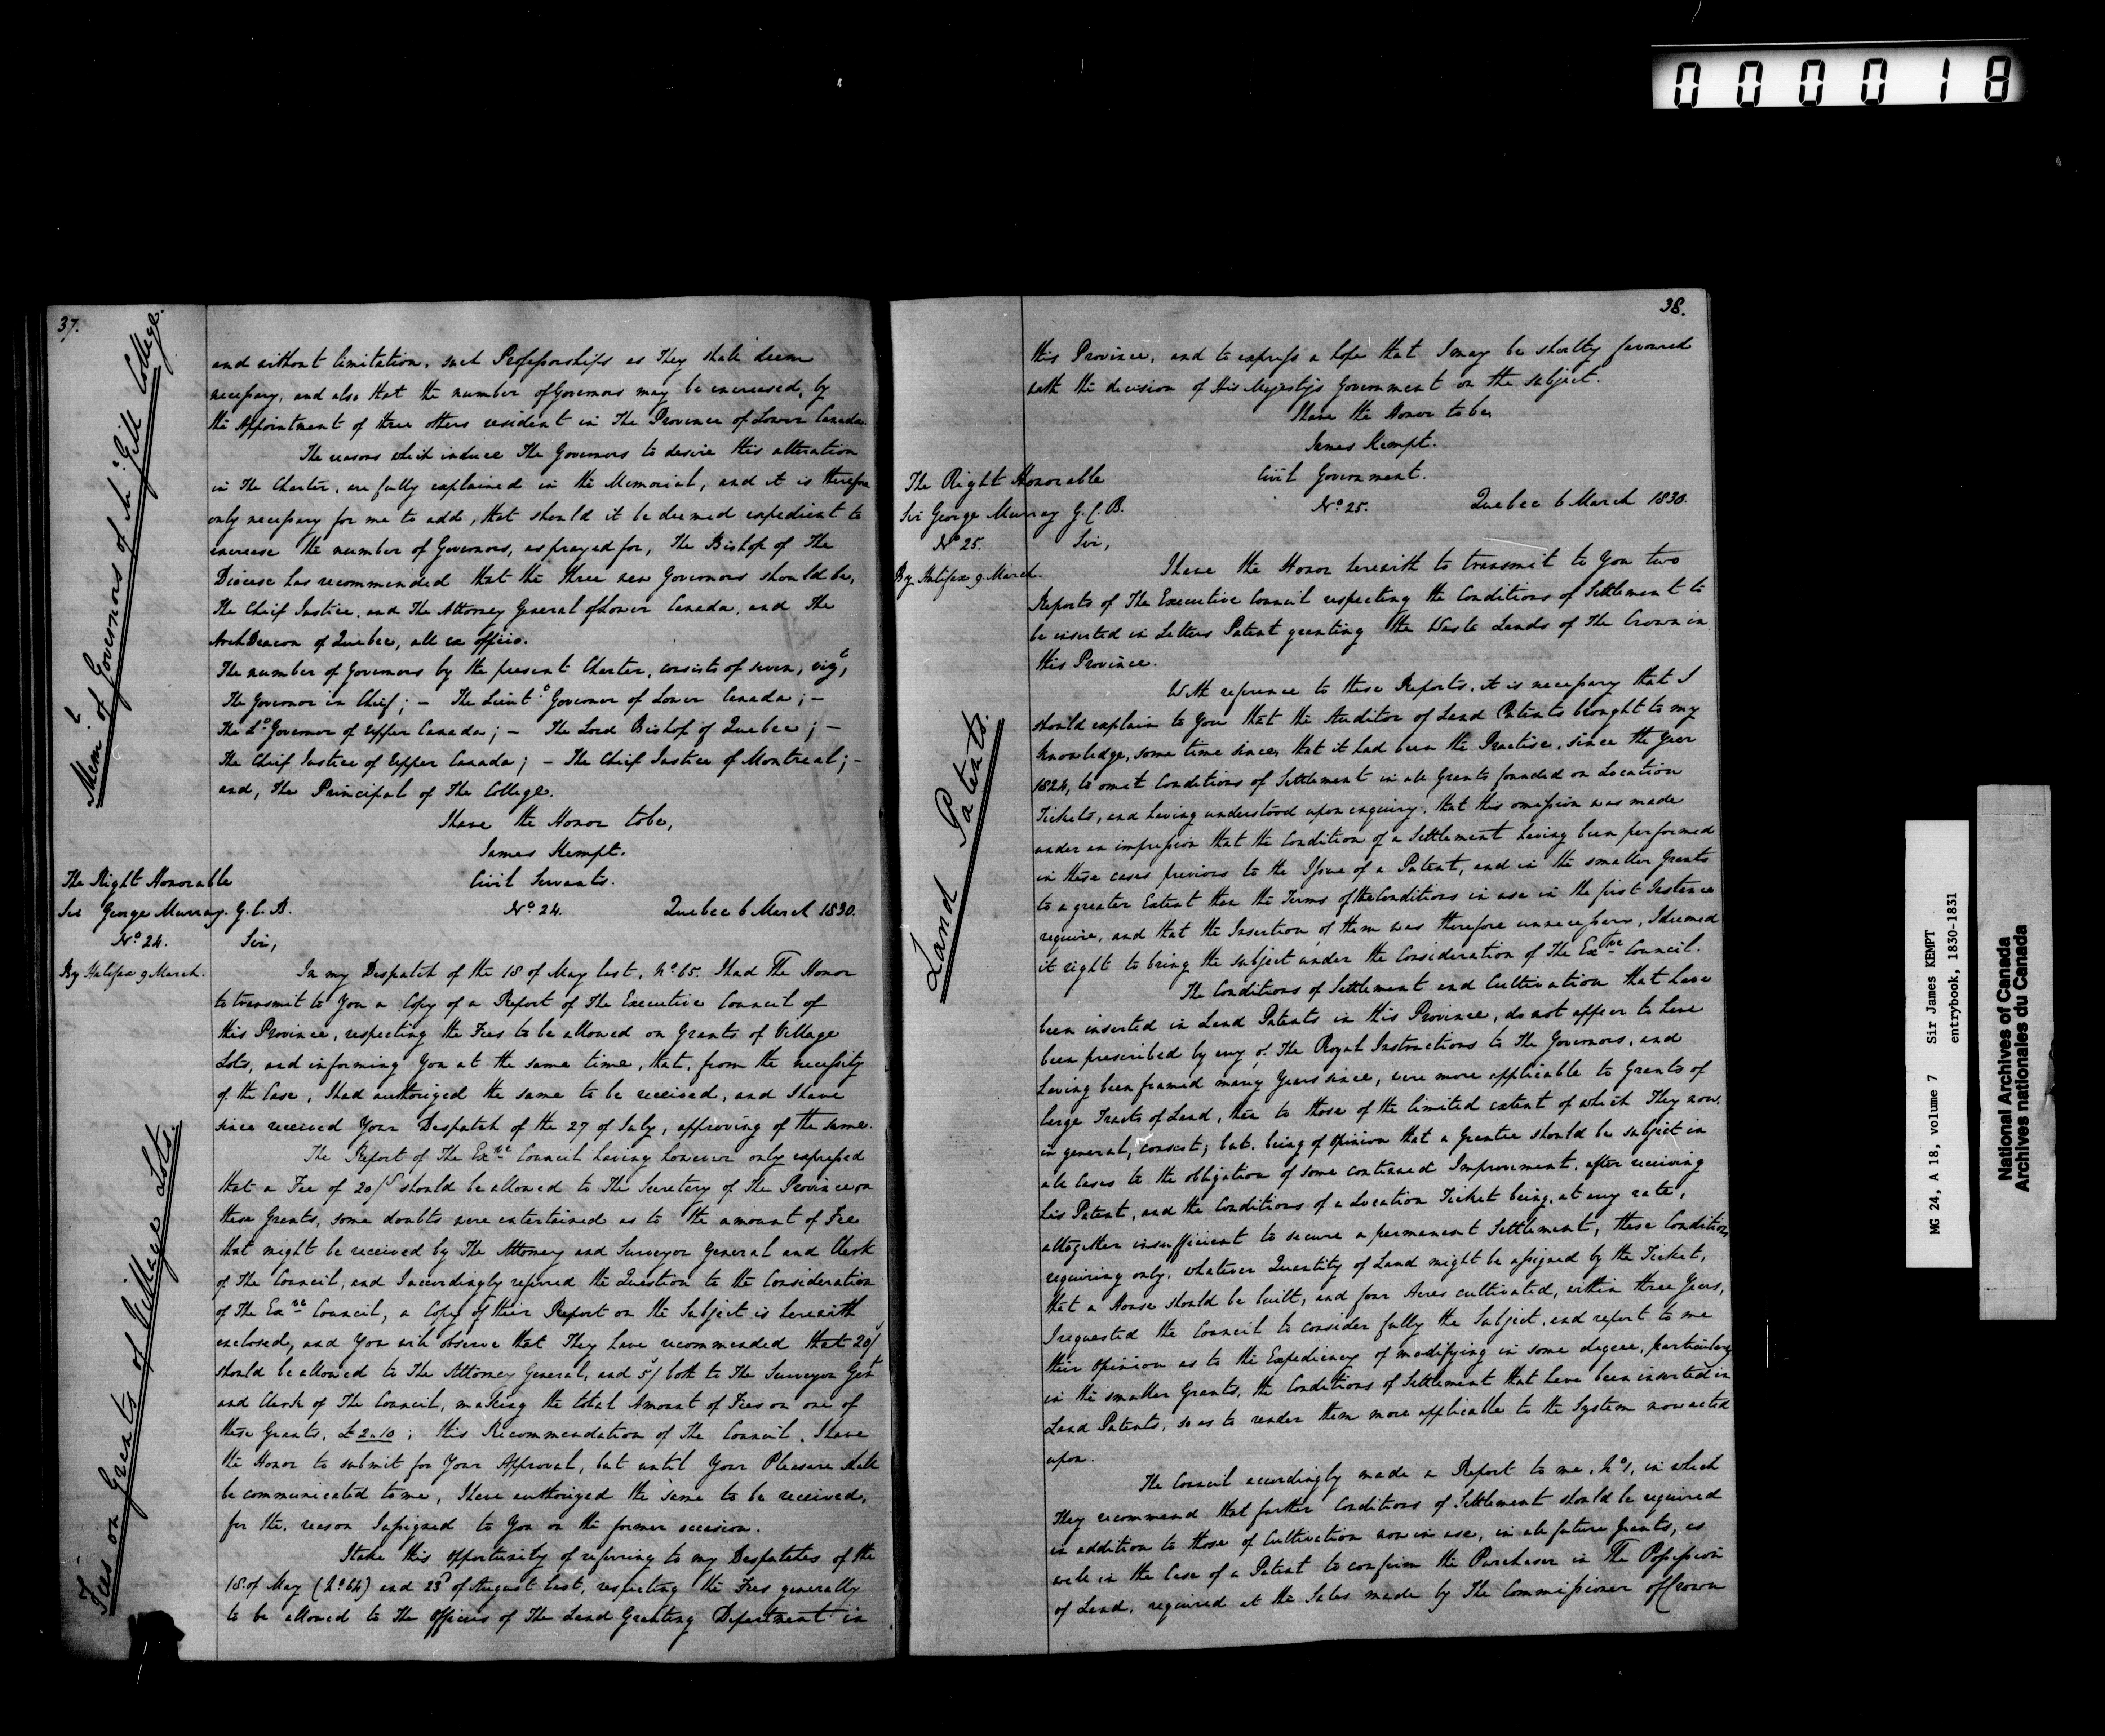 000018
37.
Mem.l of Governors of McGill College.
and without limitation, such Professorships as They shall deem
necessary, and also that the number of Governors may be increased, by
the Appointment of three others resident in The Province of Lower Canada.
The reasons which induce The Governors to desire this alteration
in The Charter, are fully explained in the Memorial, and it is therefore
only necessary for me to add, that should it be deemed expedient to
increase the number of Governors, as prayed for, The Bishop of The
Diocese has recommended that the three new Governors should be,
The Chief Justice, and The Attorney General of Lower Canada, and The
Arch Deacon of Quebec, all ex officio.
The number of Governors by the present Charter, consists of seven, vizt,
The Governor in Chief; – The Lieut. Governor of Lower Canada; –
The Lt Governor of Upper Canada; – The Lord Bishop of Quebec; –
The Chief Justice of Upper Canada; – The Chief Justice of Montreal; –
and, The Principal of The College.
I have the Honor to be,
James Kempt.
The Right Honorable
Civil Servants.
Sir George Murray. G.C.B.
No 24. Quebec 6 March 1830.
No 24.
Sir,
By Halifax 9 March.
In my Dispatch of the 18 of May last, No 65. I had The Honor
to transmit to You a Copy of a Report of The Executive Council of
this Province, respecting the Fees to be allowed on Grants of Village
Lots, and informing You at the same time, that, from the necessity
of the Case, I had authorized the same to be received, and I have
since received Your Despatch of the 27 of July, approving of the same.
Fees on Grants of Village Lots.
The Report of The Exve Council having however only expressed
that a Fee of 20/ should be allowed to The Secretary of The Province on
these Grants, some doubts were entertained as to the amount of Fee
that might be received by The Attorney and Surveyor General and Clerk
of The Council, and I accordingly referred the Question to the Consideration
of The Exve Council, a Copy of their Report on the Subject is herewith
enclosed, and You will observe that They have recommended that 20/
should be allowed to The Attorney General, and 5/ both to The Surveyor Genl
and Clerk of The Council, making the total Amount of Fees on one of
these Grants, £2.10; this Recommendation of The Council, I have
the Honor to submit for Your Approval, but until Your Pleasure shall
be communicated to me, I have authorized the same to be received,
for the reason I assigned to You on the former occasion.
I take this opportunity of referring to my Despatches of the
18 of May (No 64) and 23d of August last, respecting the Fees generally
to be allowed to The Officers of The Land Granting Department in
38.
this Province, and to express a hope that I may be shortly favoured
with the decision of His Majesty's Government on the subject.
I have the Honor to be,
James Kempt.
The Right Honorable
Civil Government.
Sir George Murray G.C.B.
No 25. Quebec 6 March 1830.
No 25.
Sir,
By Halifax 9 March.
I have the Honor herewith to transmit to You two
Reports of The Executive Council respecting the Conditions of Settlement to
be inserted in Letters Patent granting the Waste Lands of The Crown in
this Province.
Land Patents.
With reference to these Reports, it is necessary that I
should explain to You that the Auditor of Land Patents brought to my
knowledge, some time since, that it had been the Practise, since the year
1824, to omit Conditions of Settlement in all Grants founded on Location
Tickets, and having understood upon enquiry, that this omission was made
under an impression that the Condition of a Settlement having been performed
in these cases previous to the Issue of a Patent, and in the smaller Grants
to a greater Extent than the Terms of the Conditions in use in the first Instance
require, and that the Insertion of them was therefore unnecessary, I deemed
it right to bring the subject under the Consideration of The Exve Council.
The Conditions of Settlement and Cultivation that have
been inserted in Land Patents in this Province, do not appear to have
been prescribed by any of The Royal Instructions to The Governors, and
having been framed many Years since, were more applicable to Grants of
large Tracts of Land, than to those of the limited extent of which They now,
in general, consist; but, being of opinion that a Grantee should be subject in
all Cases to the obligation of some continued Improvement, after receiving
his Patent, and the Conditions of a Location Ticket being, at any rate,
altogether insufficient to secure a permanent Settlement, these Conditions
requiring only, whatever Quantity of Land might be assigned by the Ticket,
that a House should be built, and four Acres cultivated, within three Years,
I requested the Council to consider fully the Subject, and report to me
their Opinion as to the Expediency of modifying in some degree, particularly
in the smaller Grants, the Conditions of Settlement that have been inserted in
Land Patents, so as to render them more applicable to the System now acted
upon.
The Council accordingly made a Report to me, No 1, in which
They recommend that further Conditions of Settlement should be required
in addition to those of Cultivation now in use, in all future Grants, as
well in the Case of a Patent to confirm the Purchaser in The Possession
of Land, required at the Sales made by The Commissioner of Crown
MG 24, A 18, volume 7 Sir James KEMPT
entrybook, 1830-1831
National Archives of Canada
Archives nationales du Canada